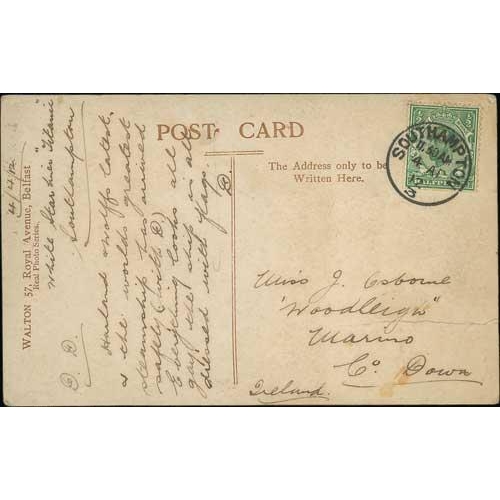 WALTON 57, Royal Avenue, Belfast
Real Photo Series.
4/4/12
White Star Liner "Titanic"
Southampton
D. D.
Harland & Wolffs latest,
& the worlds greatest
steamship has arrived
safely (with D)
Everything looks all
gay, the ship is all
dressed with flags.
D.
POST CARD
The Address only to be
Written Here.
SOUTHAMPTON
11.40 AM
4 AP
12
Miss J. Osborne
"Woodleigh"
Marino
Co. Down
Ireland.